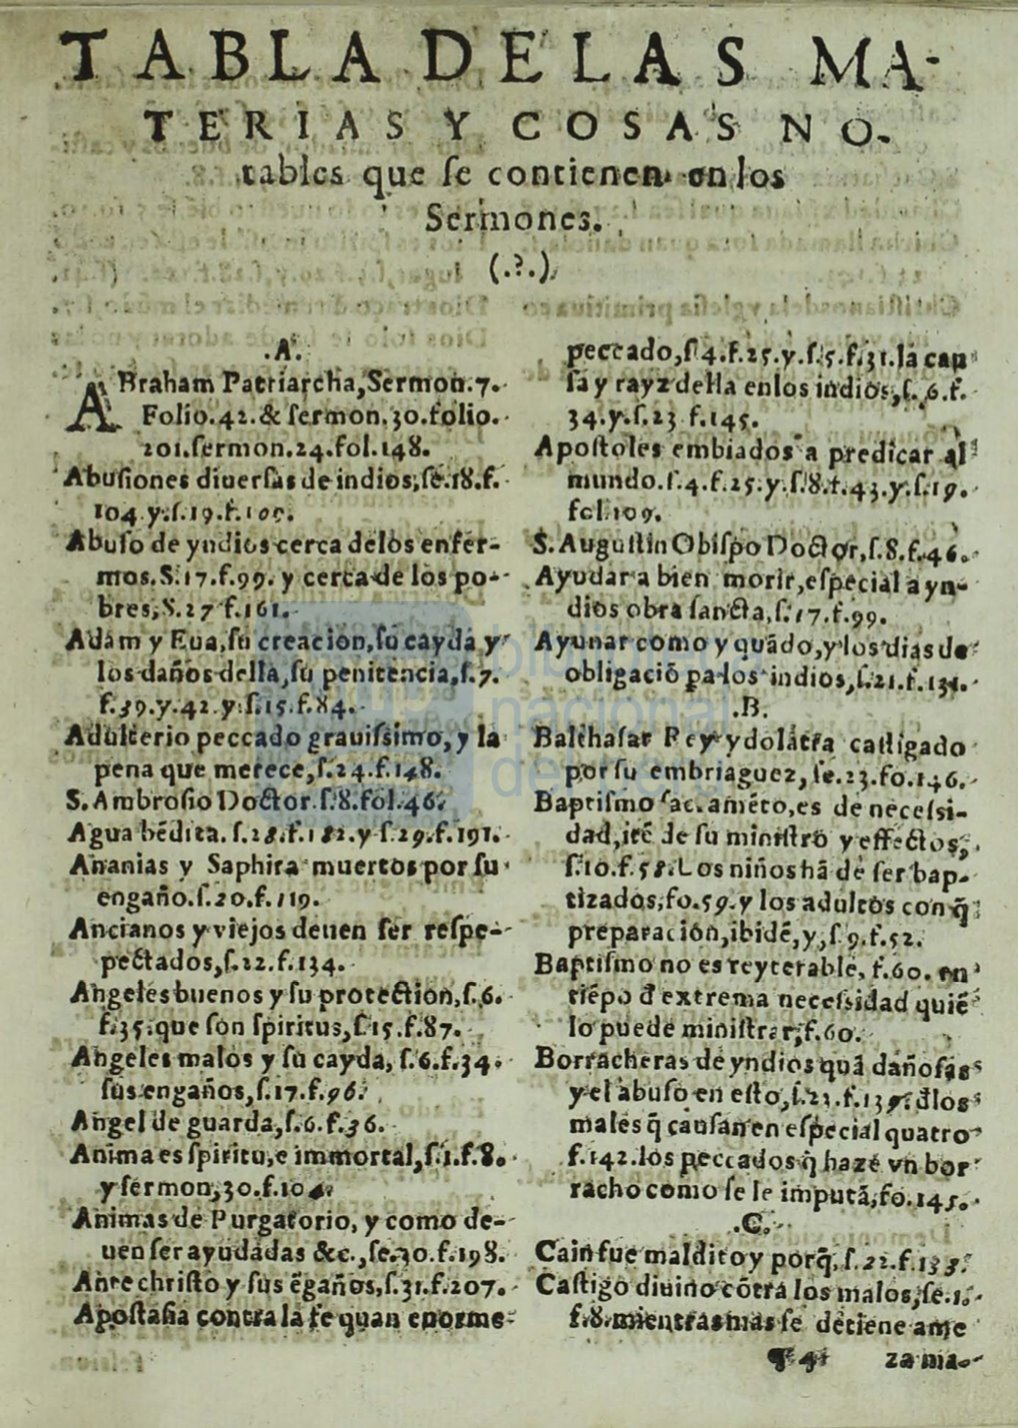 TABLA DE LAS MA-
TERIAS Y COSAS NO-
tables que ſe contienen en los
Sermones.
(.?.)
.A.
ABraham Patriarcha, Sermon.7.
Folio.42. & ſermon.30.folio.
201.ſermon.24.fol.148.
Abuſiones diuerſas de indios, ſe.18.f.
104.y.ſ.19.f.105.
Abuſo de yndios cerca delos enfer-
mos.S.17.f.99. y cerca de los po-
bres, S.27 f.161.
Adam y Eua, ſu creacion, ſu cayda y
los daños della, ſu penitencia, ſ.7.
f.39.y.42.y.ſ.15.f.84.
Adulterio peccado grauiſsimo, y la
pena que merece, ſ.24.f.148.
S. Ambroſio Doctor.ſ.8.fol.46.
Agua bēdita. ſ.28.f.182.y.ſ.29.f.191.
Ananias y Saphira muertos por ſu
engaño.ſ.20.f.119.
Ancianos y viejos deuen ſer reſpe-
pectados, ſ.22.f.134.
Angeles buenos y ſu protection, ſ.6.
f.35.que ſon ſpiritus, ſ.15.f.87.
Angeles malos y ſu cayda, ſ.6.f.34.
ſus engaños, ſ.17.f.96.
Angel de guarda, ſ.6.f.36.
Anima es ſpiritu, e immortal, ſ.1.f.8.
y ſermon, 30.f.104.
Animas de Purgatorio, y como de-
uen ſer ayudadas &c., ſe.30.f.198.
Antechriſto y ſus ēgaños, ſ.31.f.207.
Apoſtaſia contra la fe quan enorme
peccado, ſ.4.f.25.y.ſ.5.f.31.la cau
ſa y rayz della en los indios, ſ.6.f.
34.y.ſ.23 f.145.
Apoſtoles embiados a predicar al
mundo.ſ.4.f.25.y.ſ.8.f.43.y.ſ.19.
fol.109.
S. Auguſtin Obiſpo Doctor, ſ.8.f.46.
Ayudar a bien morir, eſpecial a yn-
dios obra ſancta, ſ.17.f.99.
Ayunar como y quādo, y los dias de
obligaciō pa los indios, ſ.21.f.131.
.B.
Balthaſar Rey ydolatra caſtigado
por ſu embriaguez, ſe.23.fo.146.
Baptiſmo ſac.amēto, es de neceſsi-
dad, itē de ſu miniſtro y effectos,
ſ.10.f.58.Los niños hā de ſer bap-
tizados, fo.59.y los adultos con q̄
preparacion, ibidē, y, ſ.9.f.52.
Baptiſmo no es reyterable, f.60. en
tiēpo đ extrema neceſsidad quiē
lo puede miniſtrar, f.60.
Borracheras de yndios quā dañoſas
y el abuſo en eſto, ſ.23.f.139. đlos
males q̄ cauſan en eſpecial quatro
f.142.los peccados q̄ haze vn bor
racho como ſe le imputā, fo.145.
.C.
Cain fue maldito y porq̄, ſ.22.f.133.
Caſtigo diuino cōtra los malos, ſe.1.
f.8.mientras mas ſe detiene ame
¶ 4 za ma-